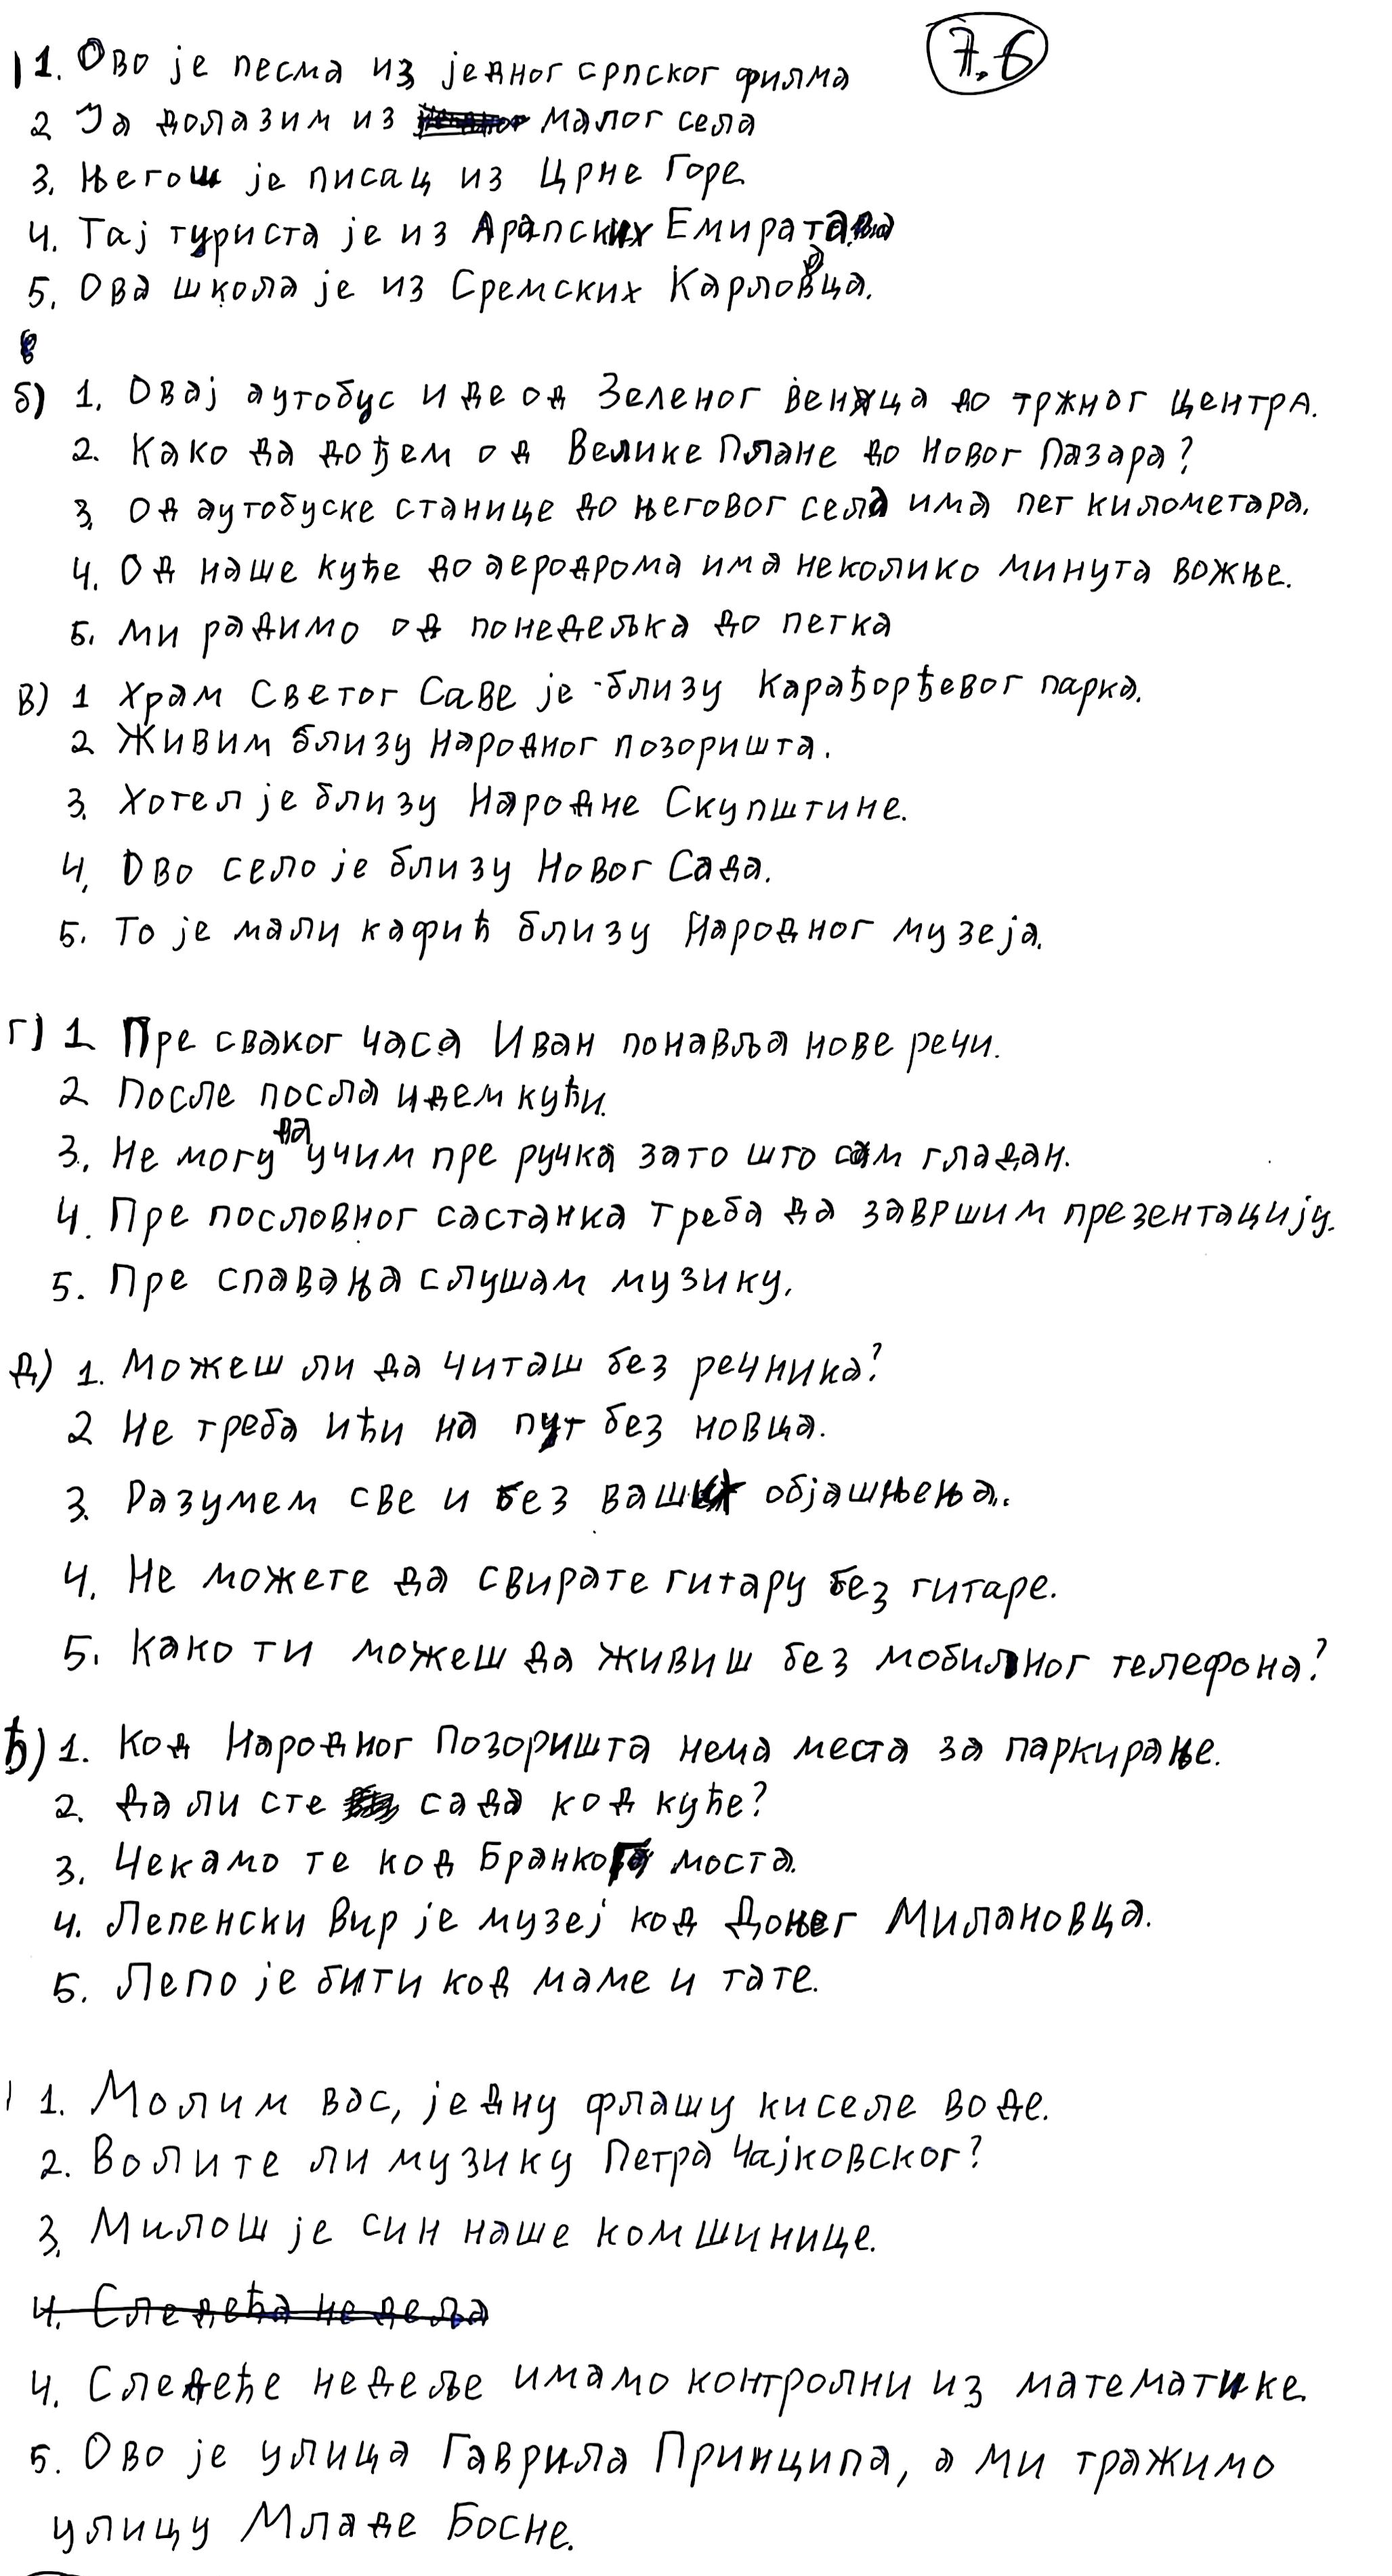 7.6
1. Ово је песма из једног српског филма
2 Ја долазим из малог села
3. Његош је писац из Црне Горе.
4. Тај туриста је из Арапских Емирата.
5. Ова школа је из Сремских Карловаца.
б) 1. Овај аутобус иде од Зеленог венца до тржног центра.
2. Како да дођем од Велике Плане до Новог Пазара?
3. Од аутобуске станице до његовог села има пет километара.
4. Од наше куће до аеродрома има неколико минута вожње.
5. Ми радимо од понедељка до петка
в) 1 Храм Светог Саве је близу Карађорђевог парка.
2 Живим близу Народног позоришта.
3. Хотел је близу Народне Скупштине.
4. Ово село је близу Новог Сада.
5. То је мали кафић близу Народног музеја.
г) 1 Пре сваког часа Иван понавља нове речи.
2 После посла идем кући.
3. Не могу да учим пре ручка зато што сам гладан.
4. Пре пословног састанка треба да завршим презентацију.
5. Пре спавања слушам музику.
д) 1. Можеш ли да читаш без речника?
2 Не треба ићи на пут без новца.
3. Разумем све и без ваших објашњења.
4. Не можете да свирате гитару без гитаре.
5. Како ти можеш да живиш без мобилног телефона?
ђ) 1. Код Народног Позоришта нема места за паркирање.
2. Да ли сте сада код куће?
3. Чекамо те код Бранковог моста.
4. Лепенски Вир је музеј код Доњег Милановца.
5. Лепо је бити код маме и тате.
1. Молим вас, једну флашу киселе воде.
2. Волите ли музику Петра Чајковског?
3. Милош је син наше комшинице.
4. Следећа недеља
4. Следеће недеље имамо контролни из математике.
5. Ово је улица Гаврила Принципа, а ми тражимо
улицу Младе Босне.